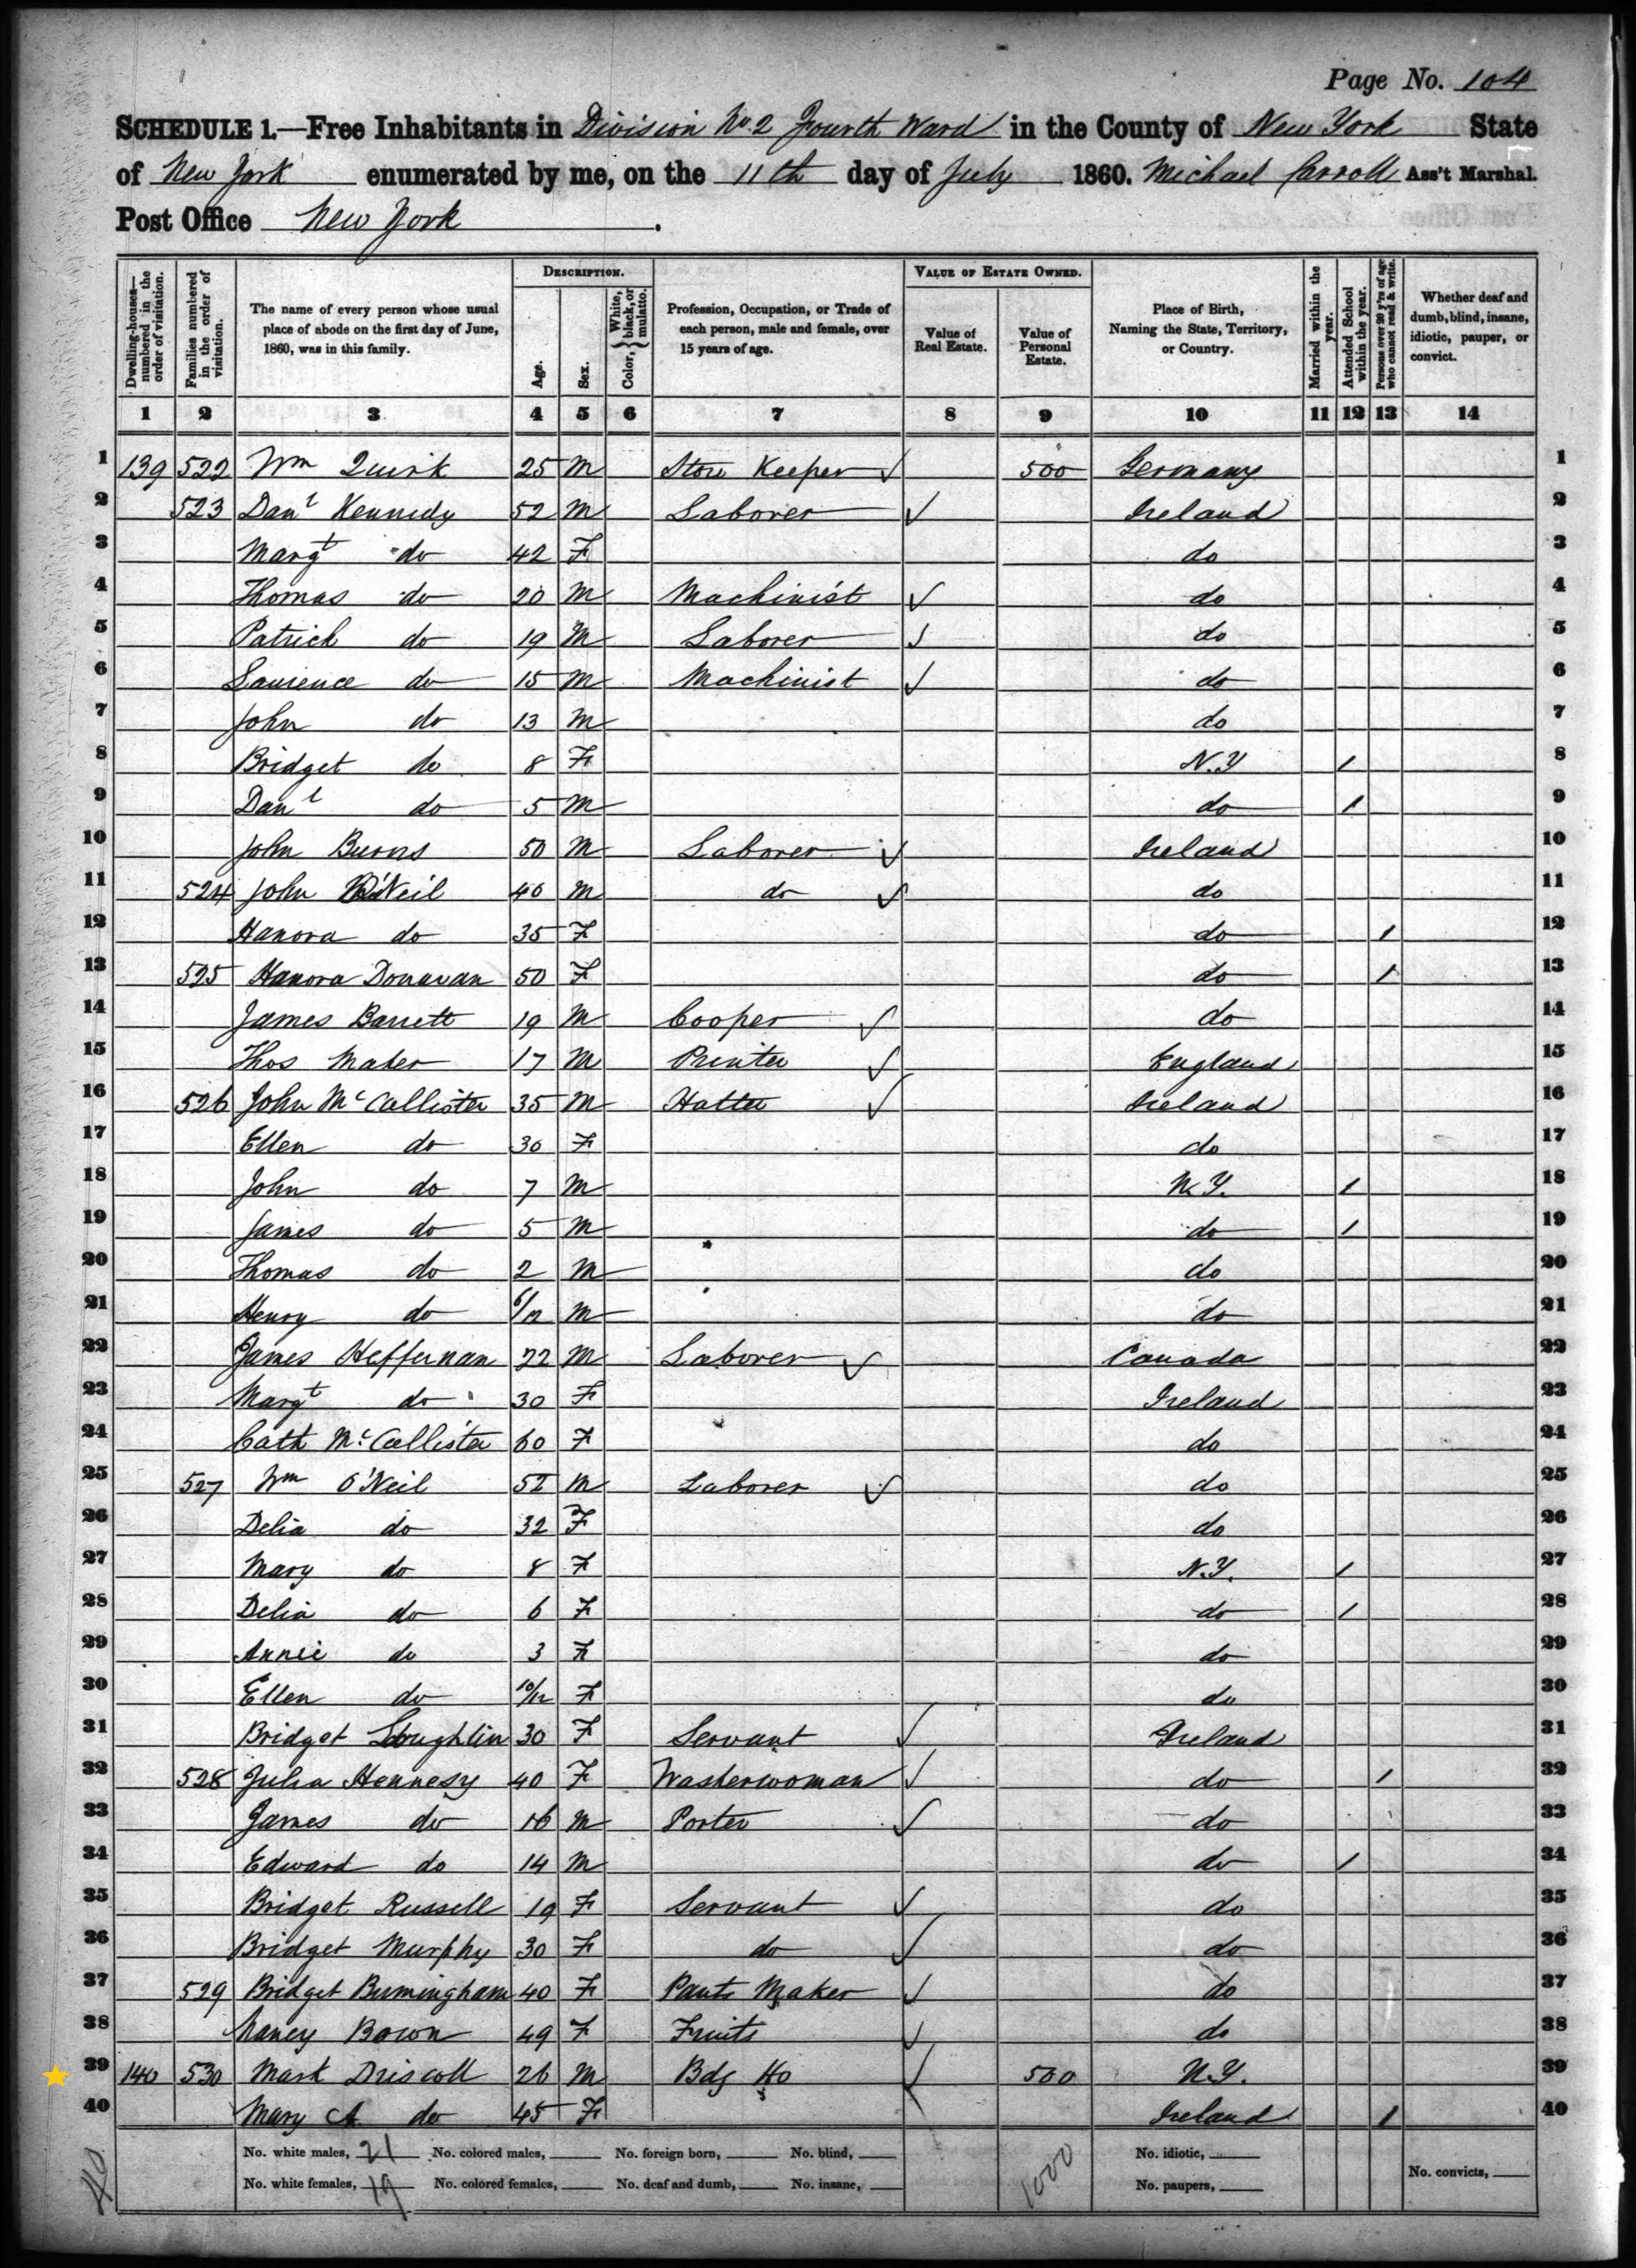 Page No. 104
SCHEDULE 1.—Free Inhabitants in Division No 2 Fourth Ward in the County of New York State
of New York enumerated by me, on the 11th day of July 1860. Michael Carroll Ass't Marshal.
Post Office New York.
Dwelling-houses—numbered in the order of visitation. Families numbered in the order of visitation. The name of every person whose usual place of abode on the first day of June, 1860, was in this family. DESCRIPTION. Age. Sex. Color, White, black, or mulatto. Profession, Occupation, or Trade of each person, male and female, over 15 years of age. VALUE OF ESTATE OWNED. Value of Real Estate. Value of Personal Estate. Place of Birth, Naming the State, Territory, or Country. Married within the year. Attended School within the year. Persons over 20 y'rs of age who cannot read & write. Whether deaf and dumb, blind, insane, idiotic, pauper, or convict.
1 2 3 4 5 6 7 8 9 10 11 12 13 14
1 139 522 Wm Quirk 25 M Store Keeper 500 Germany 1
2 523 Danl Kennedy 52 M Laborer Ireland 2
3 Margt do 42 F do 3
4 Thomas do 20 M Machinist do 4
5 Patrick do 19 M Laborer do 5
6 Laurence do 15 M Machinist do 6
7 John do 13 M do 7
8 Bridget do 8 F N.Y 1 8
9 Danl do 5 M do 1 9
10 John Burns 50 M Laborer Ireland 10
11 524 John O'Neil 40 M do do 11
12 Hanora do 35 F do 1 12
13 525 Hanora Donavan 50 F do 1 13
14 James Barrett 19 M Cooper do 14
15 Thos Maher 17 M Printer England 15
16 526 John McCallister 35 M Hatter Ireland 16
17 Ellen do 30 F do 17
18 John do 7 M N.Y. 1 18
19 James do 5 M do 1 19
20 Thomas do 2 M do 20
21 Henry do 6/12 M do 21
22 James Heffernan 22 M Laborer Canada 22
23 Margt do 30 F Ireland 23
24 Cath McCallister 60 F do 24
25 527 Wm O'Neil 52 M Laborer do 25
26 Delia do 32 F do 26
27 Mary do 8 F N.Y. 1 27
28 Delia do 6 F do 1 28
29 Annie do 3 F do 29
30 Ellen do 10/12 F do 30
31 Bridget Loughlin 30 F Servant Ireland 31
32 528 Julia Hennesy 40 F Washerwoman do 1 32
33 James do 16 M Porter do 33
34 Edward do 14 M do 1 34
35 Bridget Russell 19 F Servant do 35
36 Bridget Murphy 30 F do do 36
37 529 Bridget Burmingham 40 F Pants Maker do 37
38 Nancy Bown 49 F Fruits do 38
39 140 530 Mark Driscoll 26 M Bdg Ho 500 N.Y. 39
40 Mary A do 45 F Ireland 1 40
No. white males, 21 No. colored males, No. foreign born, No. blind, No. idiotic,
No. white females, 19 No. colored females, No. deaf and dumb, No. insane, 1000 No. paupers, No. convicts,
40